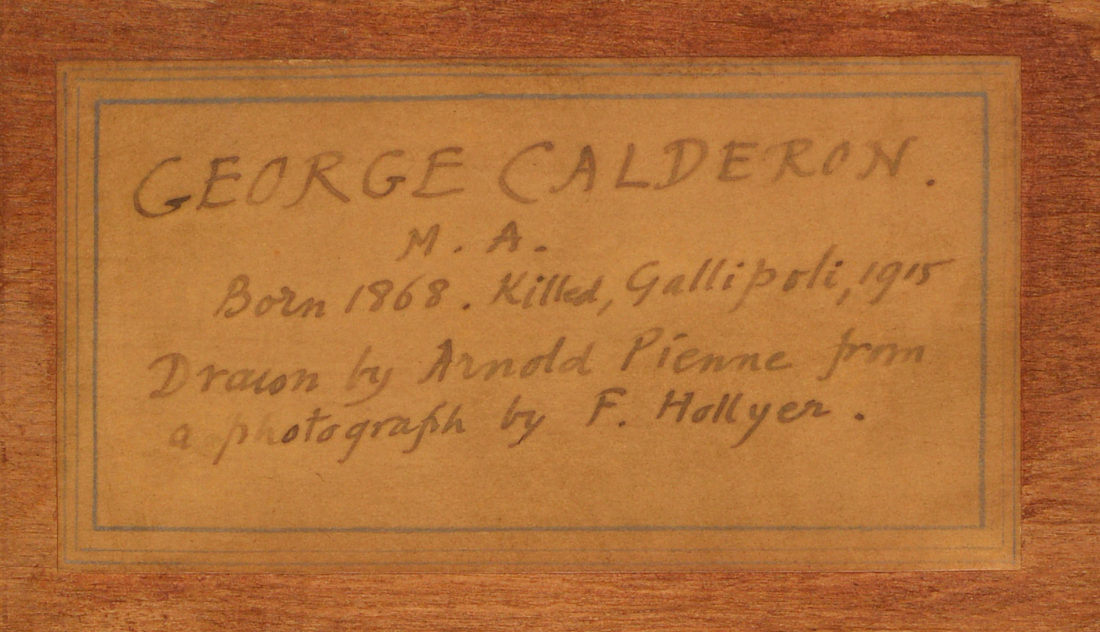 GEORGE CALDERON.
M. A.
Born 1868. Killed, Gallipoli, 1915
Drawn by Arnold Pienne from
a photograph by F. Hollyer.